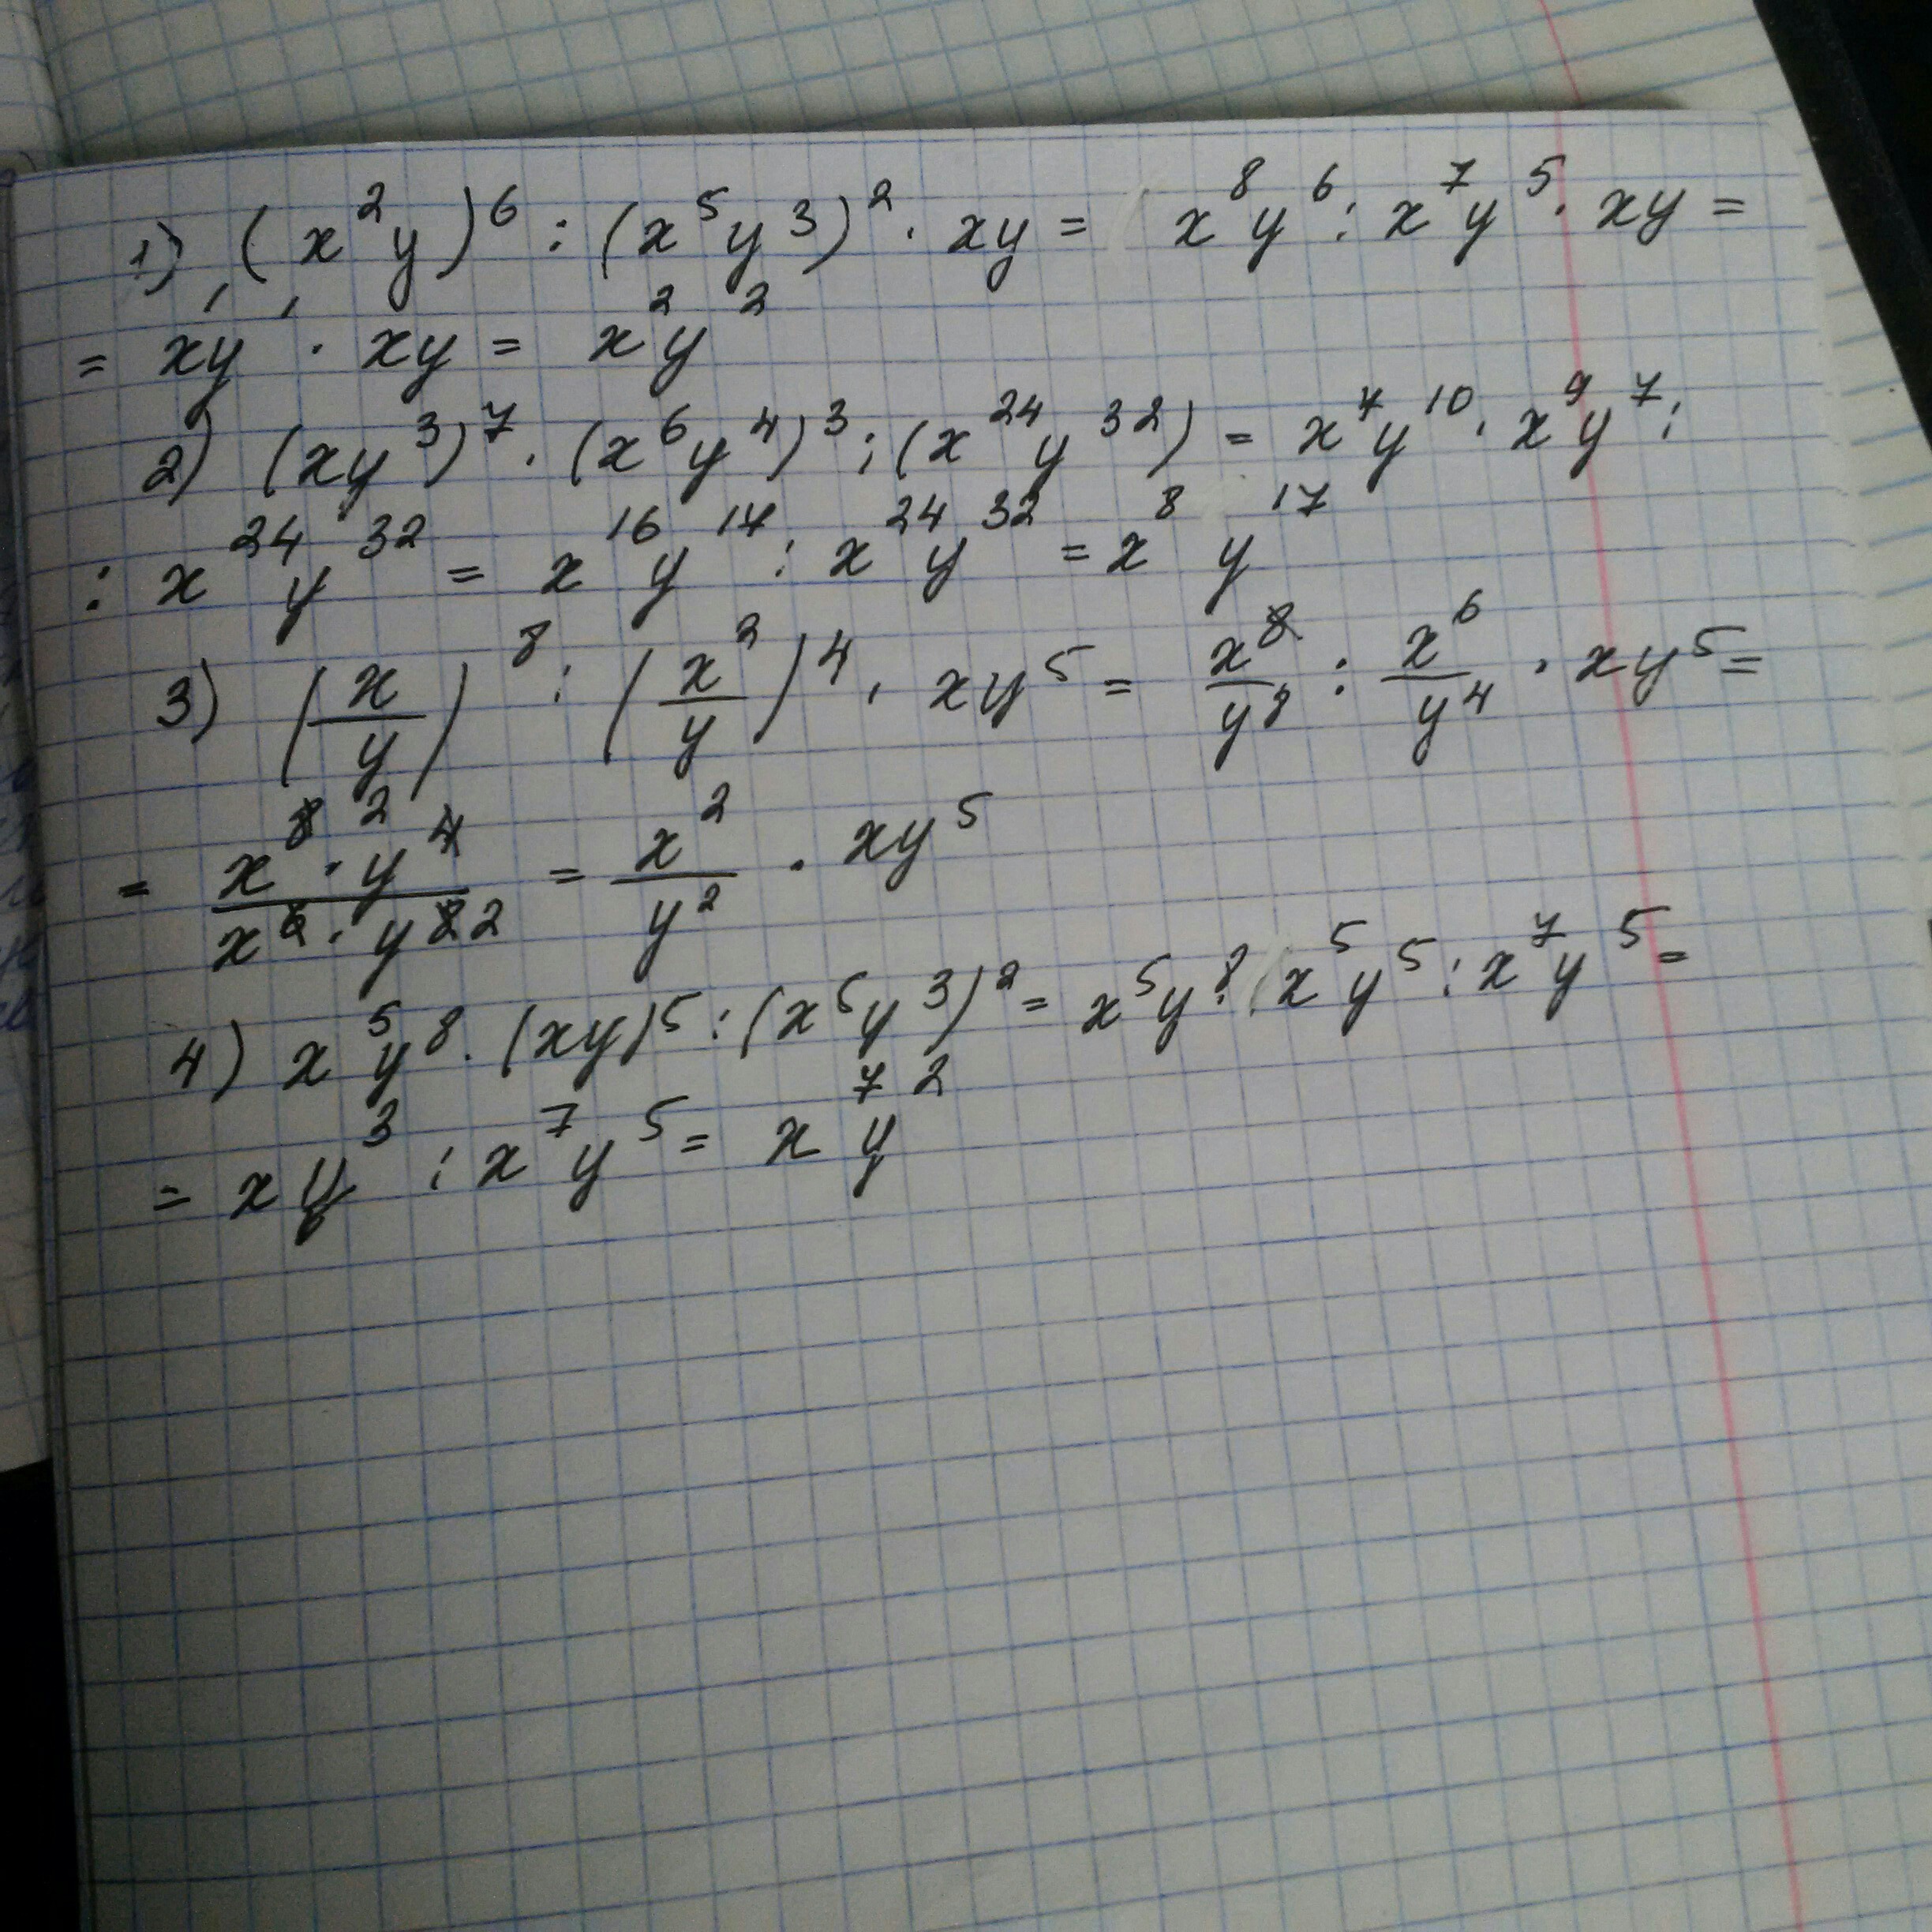 1) (x²y)⁶ : (x⁵y³)² · xy = x⁸y⁶ : x⁷y⁵ · xy =
= x¹y¹ · xy = x²y²
2) (xy³)⁷ · (x⁶y⁴)³ : (x²⁴y³²) = x⁷y¹⁰ · x⁹y⁷ :
: x²⁴y³² = x¹⁶y¹⁷ : x²⁴y³² = x⁸y¹⁷
3) (x/y)⁸ : (x²/y)⁴ · xy⁵ = x⁸/y⁸ : x⁶/y⁴ · xy⁵ =
= x⁸ ² · y⁴ / x⁶ · y⁸ ² = x²/y² · xy⁵
4) x⁵y⁸ · (xy)⁵ : (x⁵y³)² = x⁵y⁸ : x⁵y⁵ : x⁷y⁵ =
= xy³ : x⁷y⁵ = x⁷y²